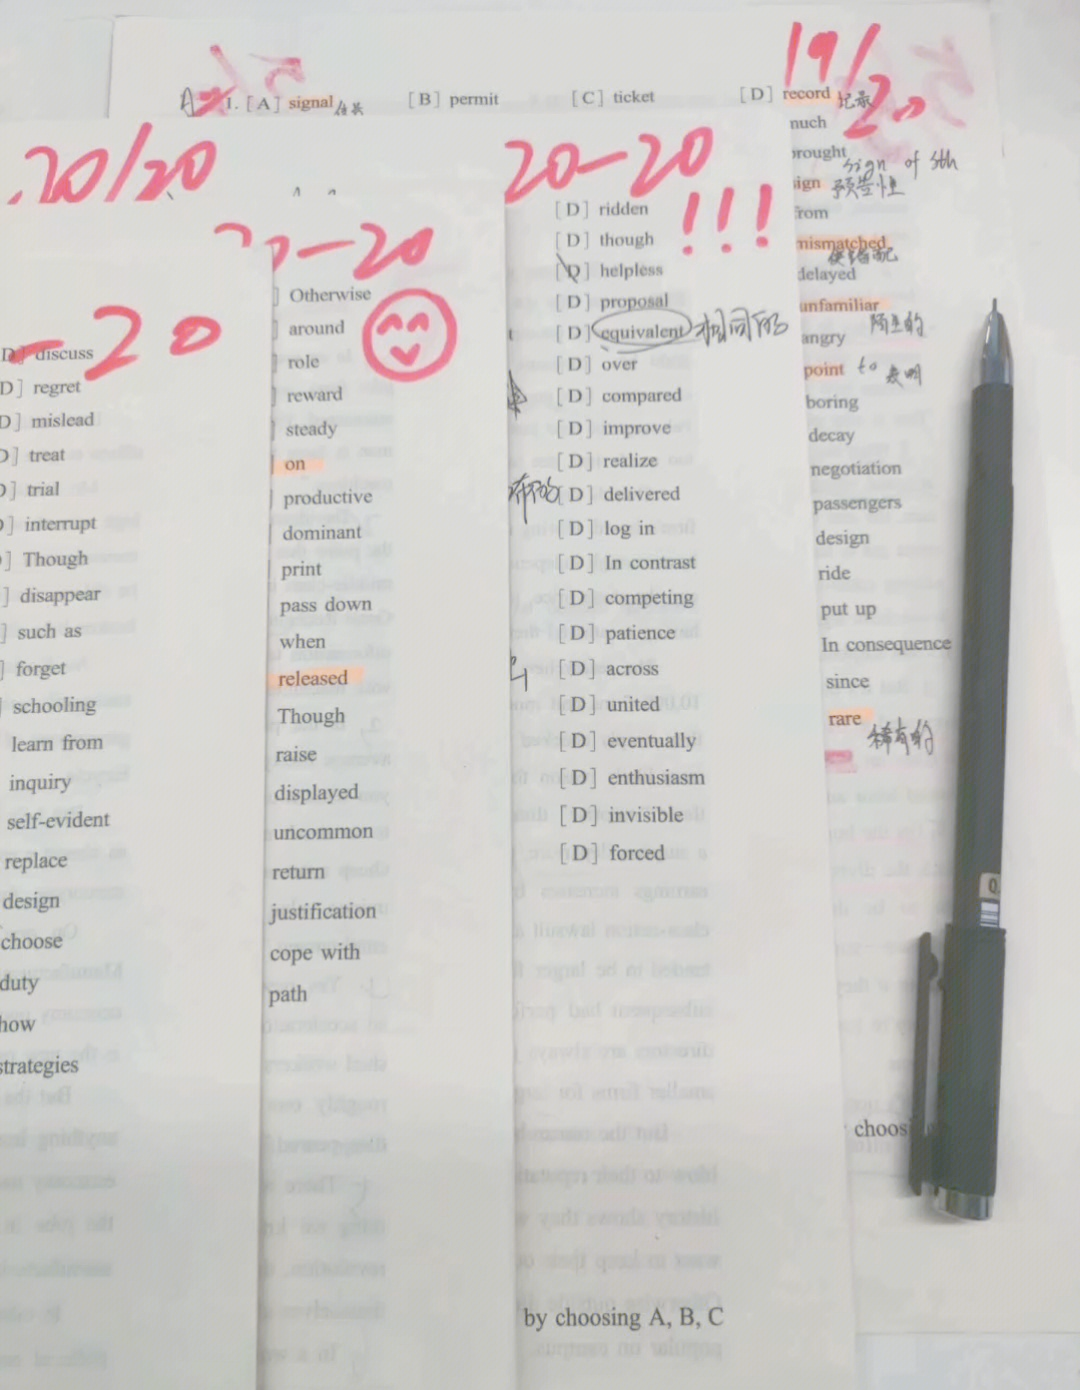 19/20
1. [A] signal [B] permit [C] ticket [D] record 记录
much
brought
sign of sth
sign 预告性
from
mismatched
使错配
delayed
unfamiliar
陌生的
angry
point to 表明
boring
decay
negotiation
passengers
design
ride
put up
In consequence
since
rare
稀有的
choosing
20-20
!!!
[D] ridden
[D] though
[D] helpless
[D] proposal
[D] equivalent 相同的
[D] over
[D] compared
[D] improve
[D] realize
[D] delivered
[D] log in
[D] In contrast
[D] competing
[D] patience
[D] across
[D] united
[D] eventually
[D] enthusiasm
[D] invisible
[D] forced
by choosing A, B, C
20/20
-20
] Otherwise
] around
] role
] reward
] steady
on
productive
dominant
print
pass down
when
released
Though
raise
displayed
uncommon
return
justification
cope with
path
-20
D] discuss
D] regret
D] mislead
D] treat
D] trial
] interrupt
] Though
] disappear
] such as
] forget
schooling
learn from
inquiry
self-evident
replace
design
choose
duty
how
strategies